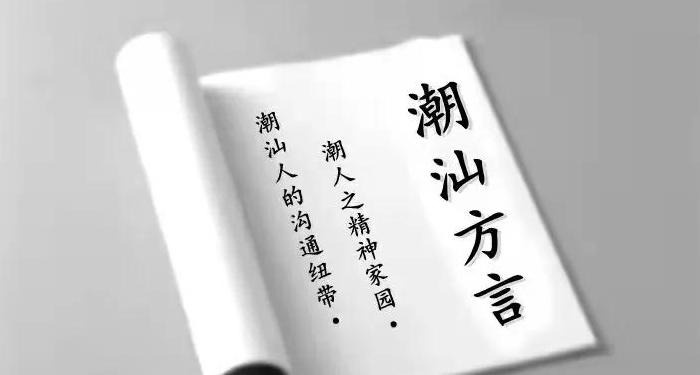 潮汕方言
潮人之精神家园.
潮汕人的沟通纽带.